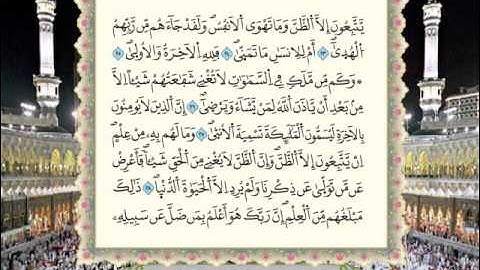 يَتَّبِعُونَ إِلَّا اَلظَّنَّ وَمَا تَهْوَى اَلْأَنفُسُ وَلَقَدْ جَآءَهُم مِّن رَّبِّهِمُ
اُلْهُدَىٰٓ ٢٣ أَمْ لِلْإِنسَٰنِ مَا تَمَنَّىٰ ٢٤ فَلِلهِ اِلْأَخِرَةُ وَالْأُولَىٰ ٢٥
وَكَم مِّن مَّلَكٍ فِي اِلسَّمَٰوَٰتِ لَا تُغْنِي شَفَٰعَتُهُمْ شَيْـًٔا إِلَّا
مِنۢ بَعْدِ أَنْ يَّأْذَنَ اَللَّهُ لِمَنْ يَّشَآءُ وَيَرْضَىٰٓ ٢٦ إِنَّ اَلذِينَ لَا يُومِنُونَ
بِالْأَخِرَةِ لَيُسَمُّونَ اَلْمَلَٰٓئِكَةَ تَسْمِيَةَ اَلْأُنثَىٰ ٢٧ وَمَا لَهُم بِهِۦ مِنْ عِلْمٍ
اِنْ يَّتَّبِعُونَ إِلَّا اَلظَّنَّ وَإِنَّ اَلظَّنَّ لَا يُغْنِي مِنَ اَلْحَقِّ شَيْـًٔا فَأَعْرِضْ
عَن مَّن تَوَلَّىٰ عَن ذِكْرِنَا وَلَمْ يُرِدِ اِلَّا اَلْحَيَوٰةَ اَلدُّنْيَا ٢٨ ذَٰلِكَ
مَبْلَغُهُم مِّنَ اَلْعِلْمِ إِنَّ رَبَّكَ هُوَ أَعْلَمُ بِمَن ضَلَّ عَن سَبِيلِهِۦ